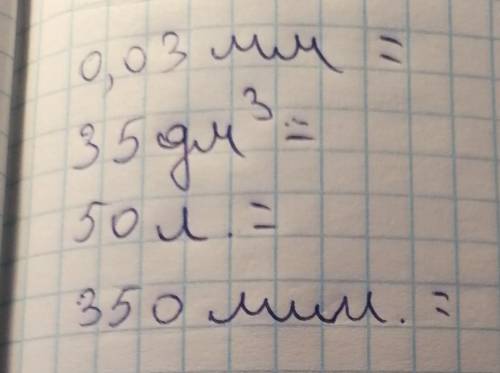 0,03 мм =
35 дм³ =
50 л. =
350 мин. =